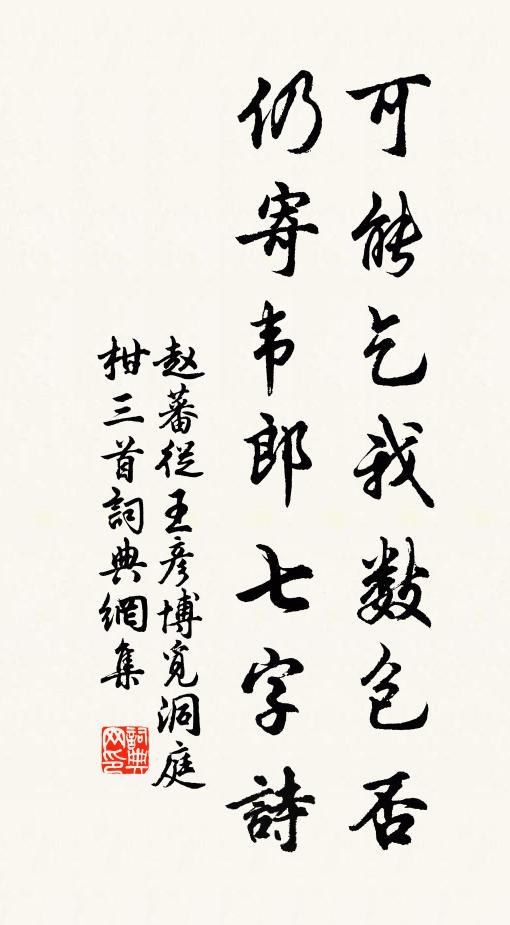 可能乞我数包否
仍寄韦郎七字詩
赵蕃從王彦博覓洞庭
柑三首詞典網集
詞典
网印